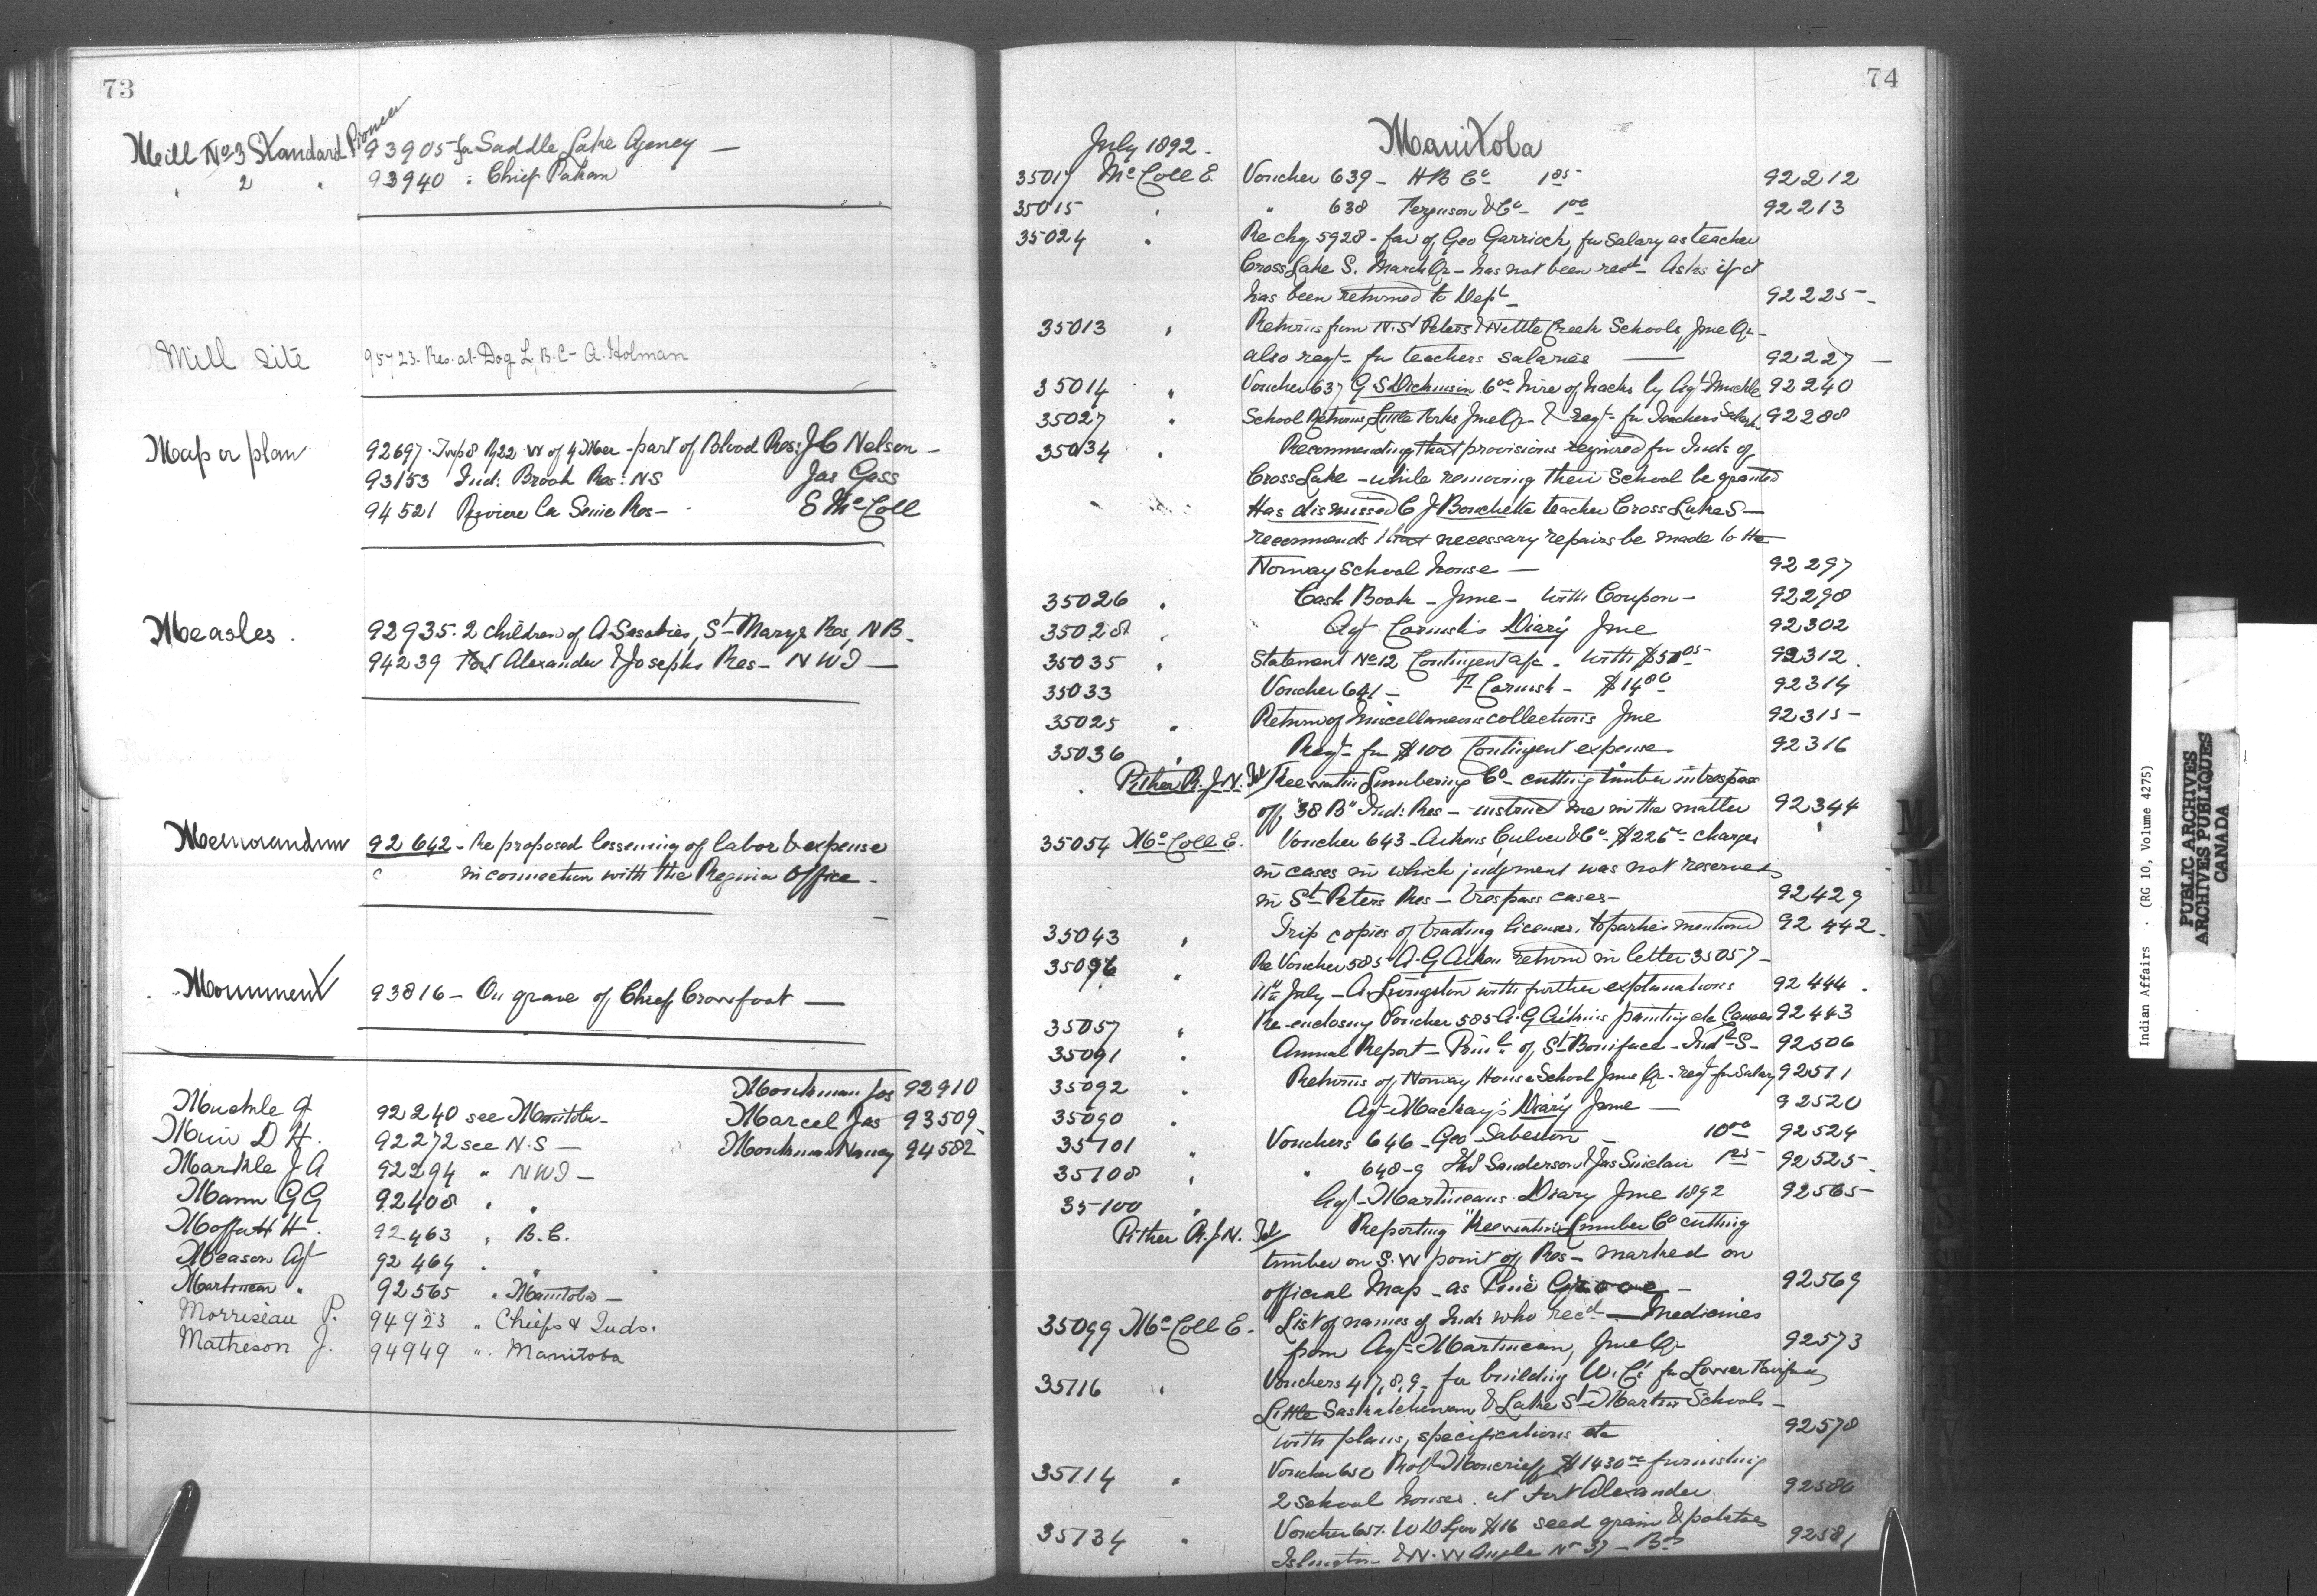 73
Mill No 3 Standard Pioneer 93905 for Saddle Lake Agency —
" 2 " 93940 " Chief Pakan
Mill site 95723. Res. at Dog L, B.C - A. Holman
Map or plan 92697 Twp 8 R 22 W of 4 Mer - part of Blood Res: J C Nelson -
93153 Ind: Brook Res: NS Jas Gass
94521 Riviere La Seine Res - E McColl
Measles . 92935. 2 children of A Sacobies, St Marys Res, NB.
94239 Fort Alexander & Josephs Res - NWT —
Memorandum 92642 - Re proposed lessening of labor & expense
in connection with the Regina Office -
Monument 93816 - On grave of Chief Crowfoot —
Monkman Jos 92910
Muckle J. 92240 see Manitoba - Marcel Jas 93509
Muir D H. 92272 see N.S — Monkman Nancy 94582
Markle J A 92294 " NWT —
Mann G G 92408 " "
Moffatt H . 92463 " B.C.
Meason Agt 92464 " "
Martineau " 92565 " Manitoba —
Morriseau P. 94923 " Chiefs & Inds.
Matheson J. 94949 " Manitoba
74
July 1892 - Manitoba
35017 McColl E. Voucher 639 - H B Co 1 85 92212
35015 " " 638 Ferguson & Co - 1 00 92213
35024 " Re chq 5928 - fav of Geo Garrioch, for salary as teacher
Cross Lake S. March Qr - has not been recd - Asks if it
has been returned to Dept — 92225 -
35013 " Returns from N. St Peters & Nettle Creek Schools, June Qr -
also reqt for teachers salaries — 92227 —
35014 " Voucher 637 G S Dickinson 6 00 hire of hacks by Agt Muckle 92240
35027 " School Returns Little Forks June Qr - & reqt - for Teachers Salary 92288
35034 " Recommending that provisions required for Inds of
Cross Lake - while removing their School be granted
Has dismissed C J Bouchette teacher Cross Lake S —
recommends that necessary repairs be made to the
Norway School house — 92297
35026 " Cash Book - June - with Coupon - 92298
35028 " Agt Cornish's Diary June 92302
35035 " Statement No 12 Contingent a/c - with 92312
35033 Voucher 641 - F Cornish - $14 80 92314
35025 " Return of Miscellaneous collections June 92315 -
35036 " Reqt - for $100 Contingent expenses 92316
Pither R. J. N. Tel Keewatin Lumbering Co - cutting timber in trespass
off "38 B" Ind: Res - instruct me in the matter 92344
35054 McColl E. Voucher 643 - Aikins Culver & Co $226 charges
in cases in which judgment was not reserved
in St Peters Res - trespass cases - 92429
35043 " Trip copies of trading licenses, to parties mentioned 92442 -
" Re Voucher 585 A. G Aitken returned in letter 35057 -
11th July - A Livingston with further explanations 92444 .
35057 " Re-enclosing Voucher 585 A. G Aitkins painting etc Canoes 92443
35091 " Annual Report - Prinl of St Boniface - Indl S - 92506
35092 " Returns of Norway House School June Qr - reqt for Salary 92511
35090 " Agt Mackay's Diary June — 92520
35101 " Vouchers 646 - Geo Sabeston - 10 00 92524
35108 " " 648-9 Sanderson & Jas Sinclair 92525 -
35100 " Agt - Martineaus Diary June 1892 92565 -
Pither R. J. N. Tel Reporting "Keewatin Lumber Co cutting
timber on S. W point of Res - marked on
official Map - as Pine Grove - 92569
35099 McColl E. List of names of Inds who recd — Medicines
from Agt - Martineau, June Qr 92573
35116 " Vouchers 417, 8, 9 - for building W. Cs for Lower Fairford
Little Saskatchewan & Lake St Martin Schools -
with plans, specifications etc 92578
35114 " Voucher 650 Robt Moncrieff $1430 furnishing
2 school houses at Fort Alexander 92580
35134 " Voucher 651. $16 seed grain & potatoes
Islington & N. W Angle No 37 - 92581
M
M
N
Indian Affairs . (RG 10, Volume 4275)
PUBLIC ARCHIVES
ARCHIVES PUBLIQUES
CANADA